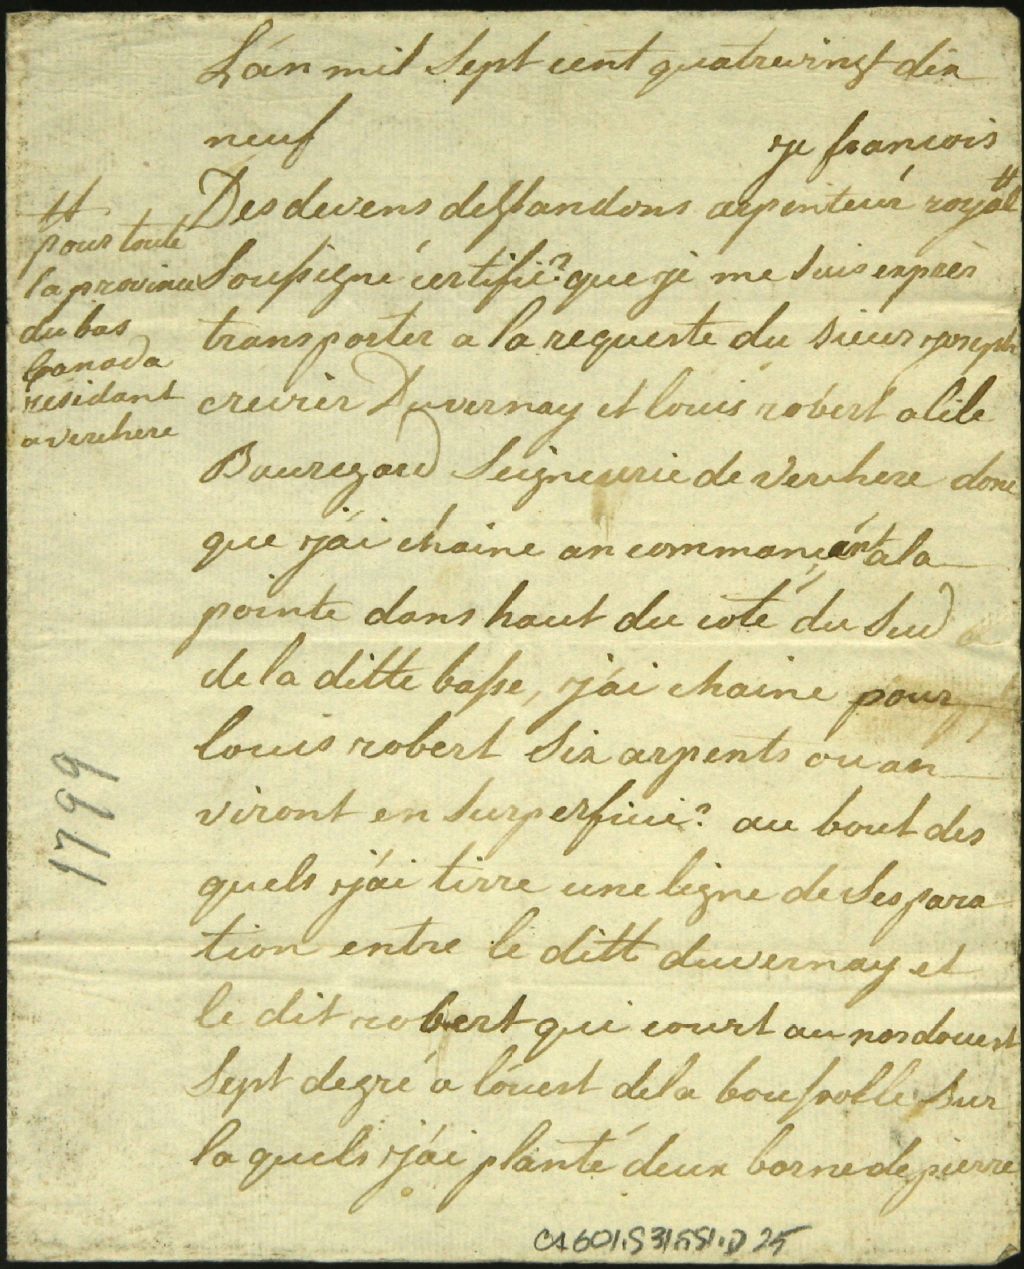 Lán mil Sept cent quatrevingt dix
neuf je francois
Desdevens desglandons arpenteur royal #
Sousigné certifie que je me suis exprès
transporter a la requeste du sieur joseph
crevier Duvernay et louis robert a lile
Bauregard Seigneurie de verchere donc
que j'ai chaine an commançant a la
pointe dans haut du coté du Sud
de la ditte basse, j'ai chaine pour
louis robert Six arpents ou an
viront en Surperficie au bout des
quels j'ai tirre une ligne de Sespara
tion entre le ditt duvernay et
le dit robert qui court au nordouest
Sept degré a l'ouest dela boussolle Sur
la quels j'ai planté deux borne de pierre
#
pour toute
la province
du bas
Canada
résidant
a verchere
1799
CA601,S31,SS1,D25